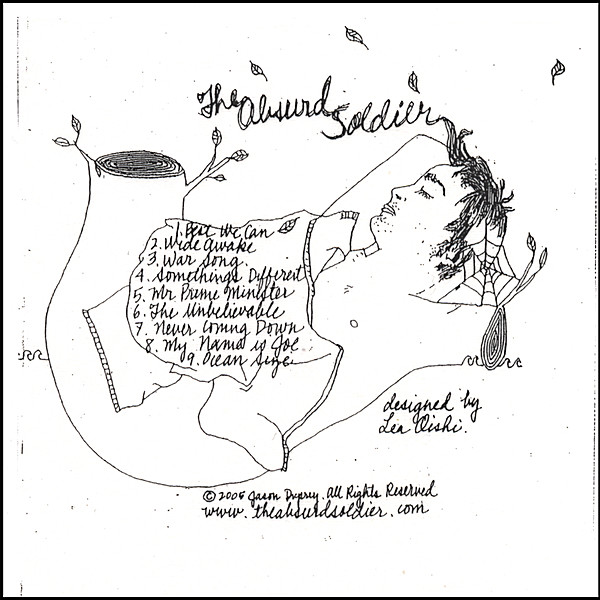 The Absurd Soldier
1. Best We Can
2. Wide Awake
3. War Song
4. Somethings Different
5. Mr Prime Minister
6. The Unbelievable
7. Never Coming Down
8. My Name is Joe
9. Ocean Size
designed by
Lea Oishi.
© 2005 Jason All Rights Reserved
www.theabsurdsoldier.com